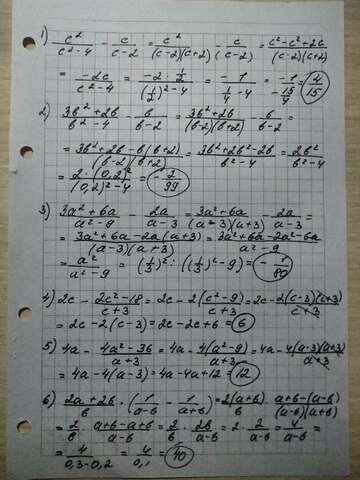 1) c²/(c²-4) - c/(c-2) = c²/((c-2)(c+2)) - c/(c-2) = (c²-c²+2c)/((c-2)(c+2))
= -2c/(c²-4) = (-2·1/2)/((1/2)²-4) = -1/(1/4-4) = -1/(-15/4) = 4/15
2) (3b²+2b)/(b²-4) - b/(b-2) = (3b²+2b)/((b-2)(b+2)) - b/(b-2) =
= (3b²+2b-b(b+2))/((b-2)(b+2)) = (3b²+2b²-2b)/(b²-4) = 2b²/(b²-4)
= 2·(0,2)²/((0,2)²-4) = -2/99
3) (3a²+6a)/(a²-9) - 2a/(a-3) = (3a²+6a)/((a+3)(a+3)) - 2a/(a-3) =
= (3a²+6a-2a(a+3))/((a-3)(a+3)) = (3a²+6a-2a²-6a)/(a²-9)
= a²/(a²-9) = (1/3)² : ((1/3)²-9) = -1/80
4) 2c - (2c²-18)/(c+3) = 2c - 2(c²-9)/(c+3) = 2c - 2(c-3)(c+3)/(c+3)
= 2c-2(c-3) = 2c-2c+6 = 6
5) 4a - (4a²-36)/(a+3) = 4a - 4(a²-9)/(a+3) = 4a - 4(a-3)(a+3)/(a+3)
= 4a-4(a-3) = 4a-4a+12 = 12
6) (2a+2b)/b · (1/(a-b) - 1/(a+b)) = 2(a+b)/b · (a+b-(a-b))/((a-b)(a+b))
= 2/b · (a+b-a+b)/(a-b) = 2/b · 2b/(a-b) = 2 · 2/(a-b) = 4/(a-b) =
= 4/(0,3-0,2) = 4/0,1 = 40